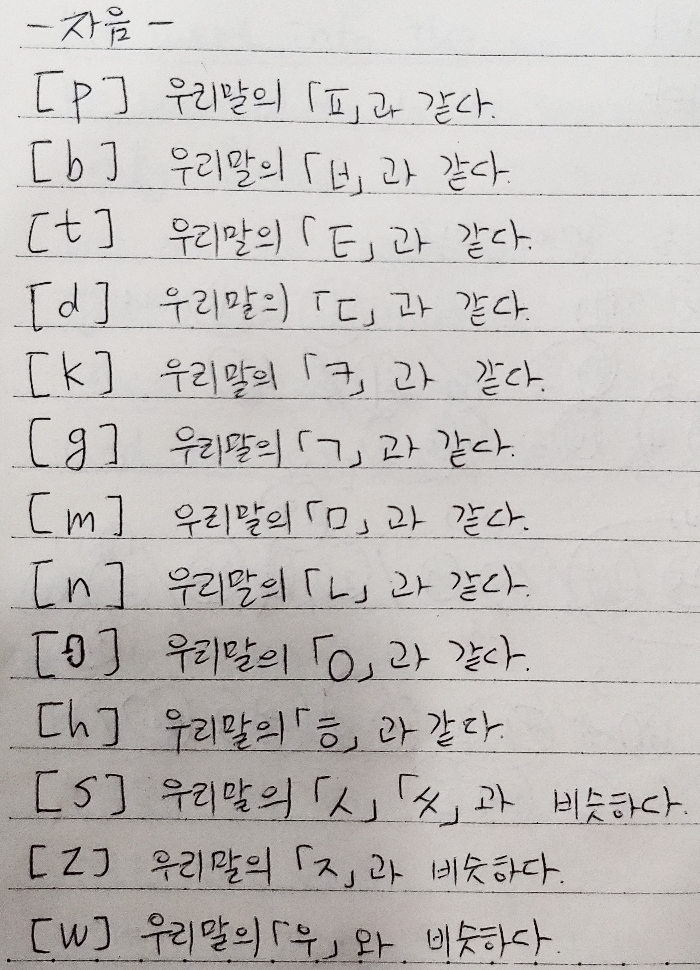 - 자음 -
[p] 우리말의 「ㅍ」과 같다.
[b] 우리말의 「ㅂ」과 같다.
[t] 우리말의 「ㅌ」과 같다.
[d] 우리말의 「ㄷ」과 같다.
[k] 우리말의 「ㅋ」과 같다.
[g] 우리말의 「ㄱ」과 같다.
[m] 우리말의 「ㅁ」과 같다.
[n] 우리말의 「ㄴ」과 같다.
[ŋ] 우리말의 「ㅇ」과 같다.
[h] 우리말의 「ㅎ」과 같다.
[s] 우리말의 「ㅅ」「ㅆ」과 비슷하다.
[z] 우리말의 「ㅈ」과 비슷하다.
[w] 우리말의 「우」와 비슷하다.